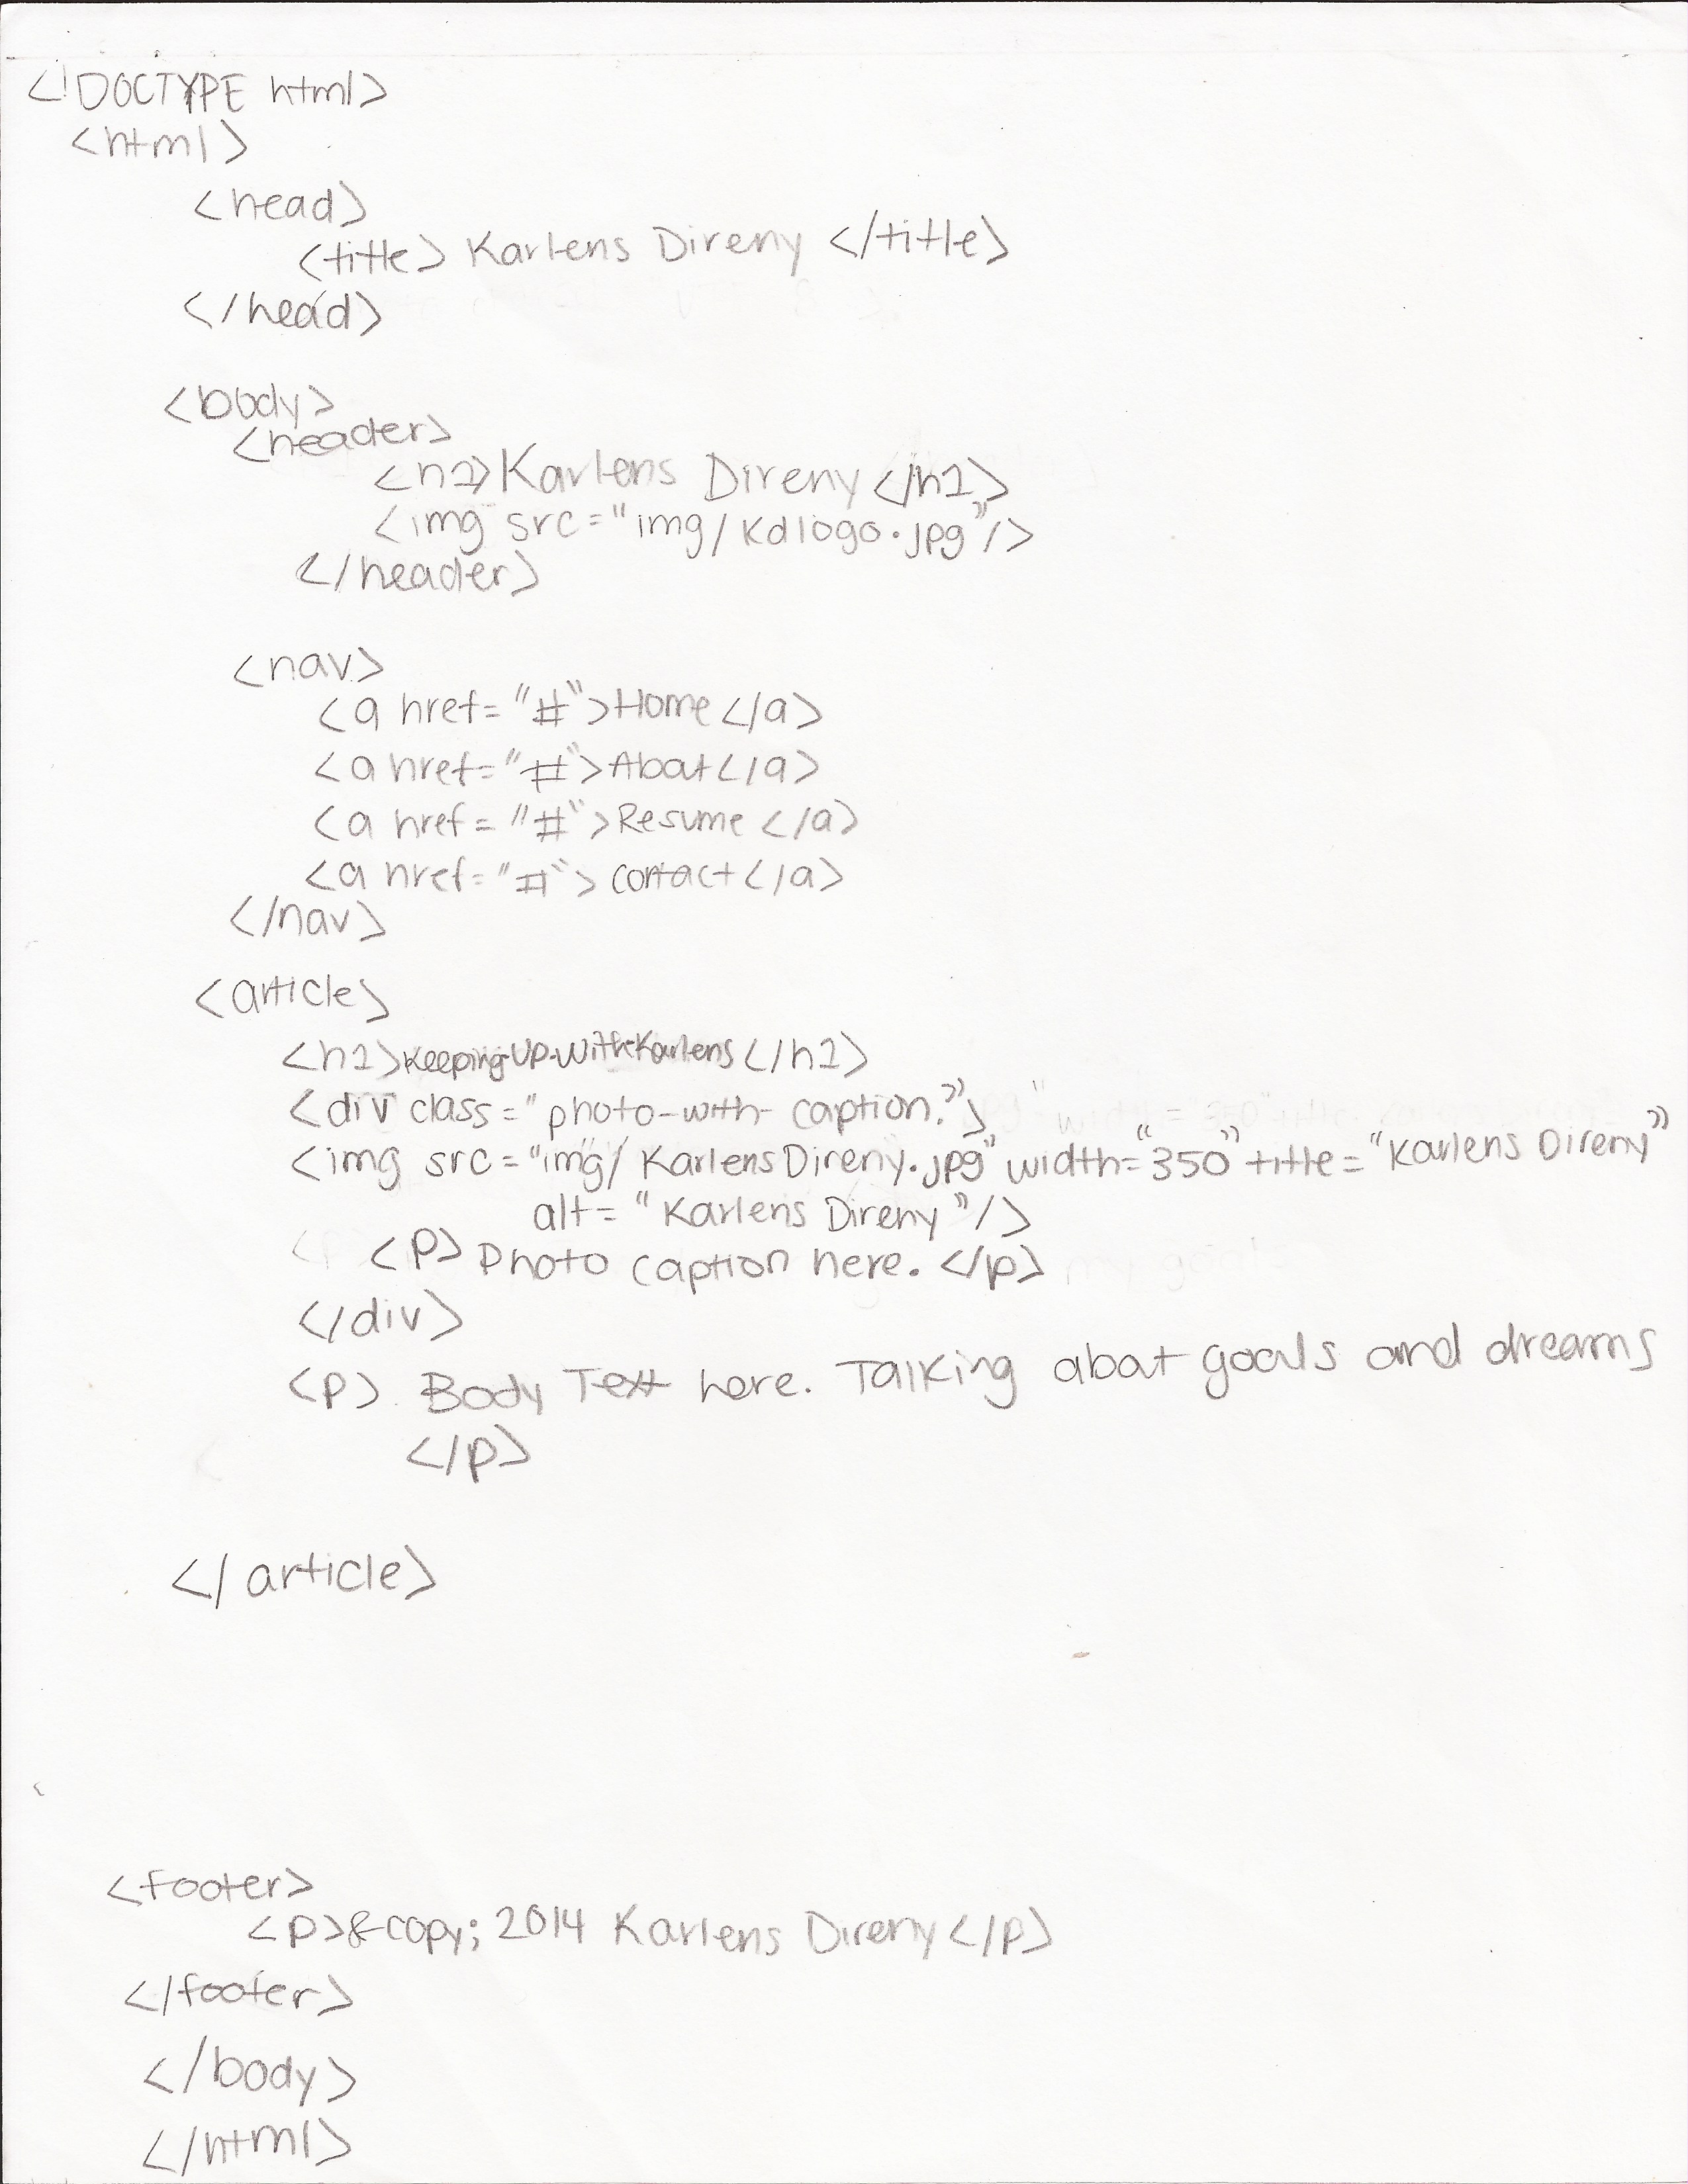 <!DOCTYPE html>
<html>
<head>
<title> Karlens Direny </title>
</head>
<body>
<header>
<h1>Karlens Direny</h1>
<img src="img/kdlogo.jpg"/>
</header>
<nav>
<a href="#">Home</a>
<a href="#">About</a>
<a href="#">Resume</a>
<a href="#">contact</a>
</nav>
<article>
<h1>Keeping-Up-With-Karlens</h1>
<div class="photo-with-caption.">
<img src="img/KarlensDireny.jpg" width="350" title="Karlens Direny"
alt="Karlens Direny"/>
<p> Photo caption here. </p>
</div>
<p> Body Text here. Talking about goals and dreams
</p>
</article>
<footer>
<p>&copy; 2014 Karlens Direny</p>
</footer>
</body>
</html>